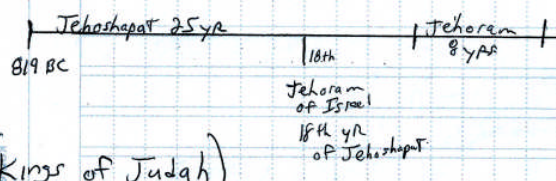 Jehoshapat 25 yr
Jehoram
8 yrs
819 BC
18th
Jehoram
of Israel
18th yr
of Jehoshapat
Kings of Judah)